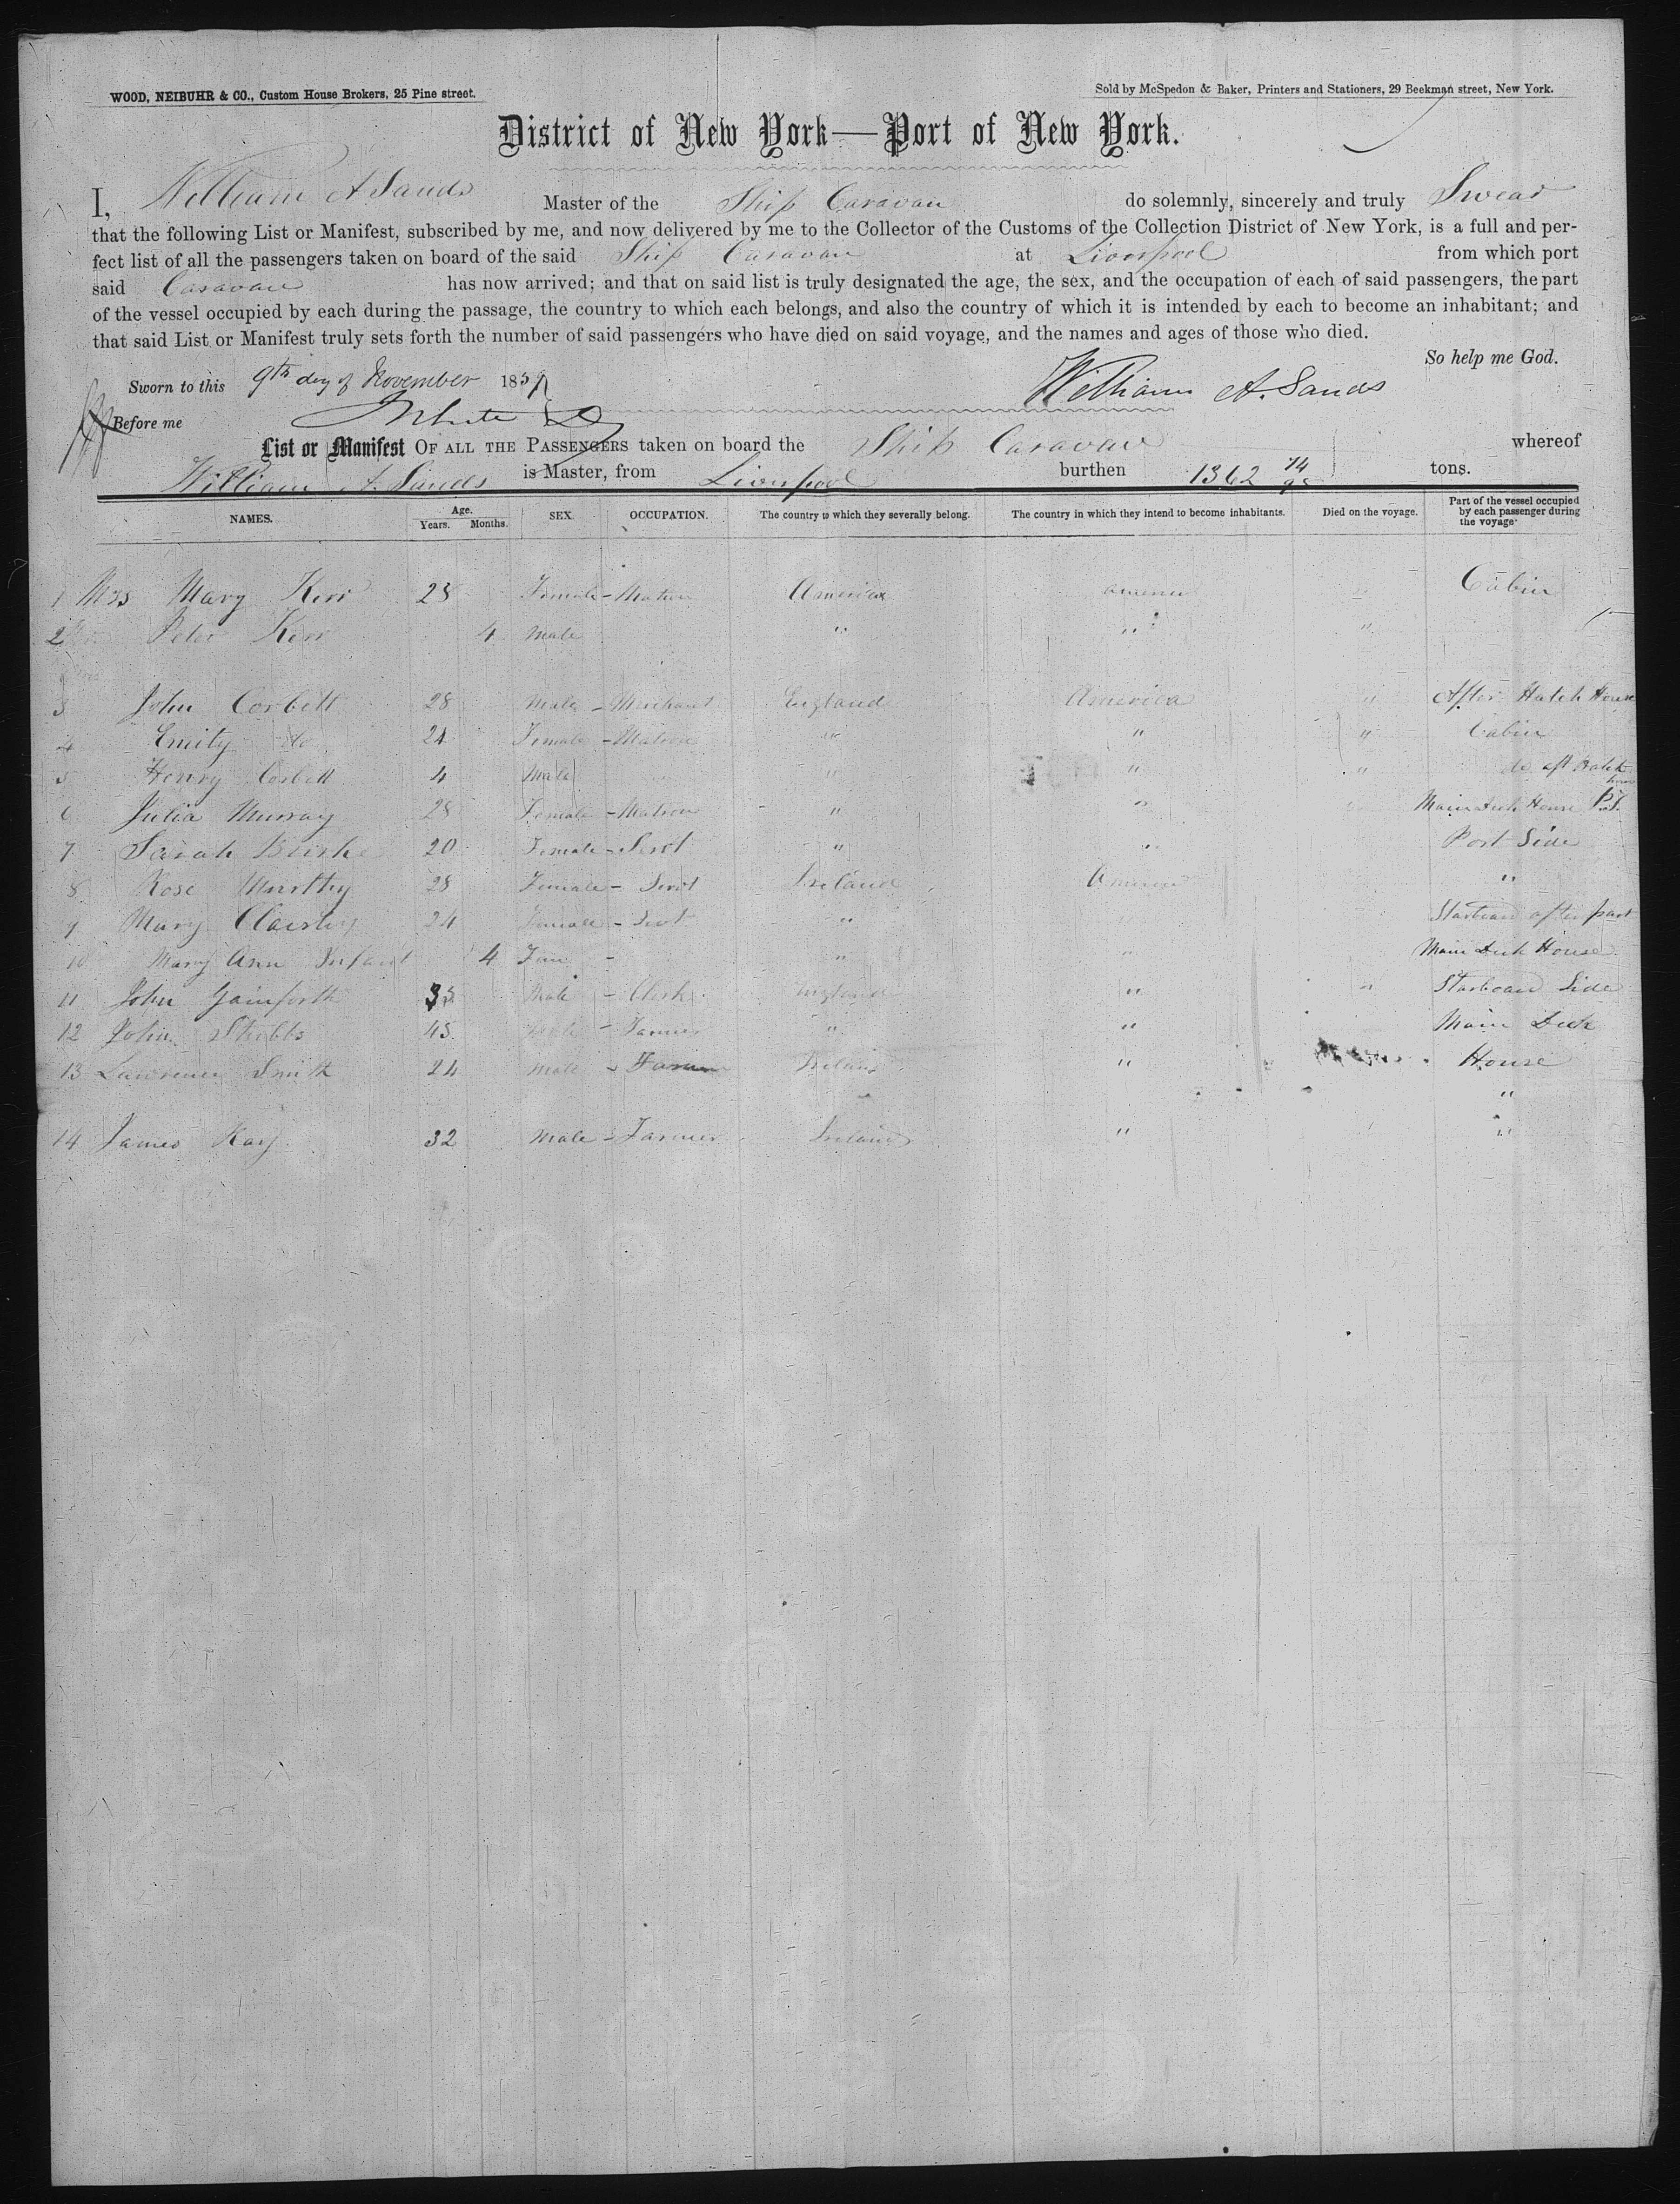 WOOD, NEIBUHR & CO., Custom House Brokers, 25 Pine street.
Sold by McSpedon & Baker, Printers and Stationers, 29 Beekman street, New York.
District of New York—Port of New York.
I, William A Sands Master of the Ship Caravan do solemnly, sincerely and truly Swear
that the following List or Manifest, subscribed by me, and now delivered by me to the Collector of the Customs of the Collection District of New York, is a full and per-
fect list of all the passengers taken on board of the said Ship Caravan at Liverpool from which port
said Caravan has now arrived; and that on said list is truly designated the age, the sex, and the occupation of each of said passengers, the part
of the vessel occupied by each during the passage, the country to which each belongs, and also the country of which it is intended by each to become an inhabitant; and
that said List or Manifest truly sets forth the number of said passengers who have died on said voyage, and the names and ages of those who died.
So help me God.
Sworn to this 9th day of November 185 William A. Sands
Before me
List or Manifest OF ALL THE PASSENGERS taken on board the Ship Caravan whereof
William A. Sands is Master, from Liverpool burthen 1362 74/95 tons.
NAMES. Age. Years. Months. SEX. OCCUPATION. The country to which they severally belong. The country in which they intend to become inhabitants. Died on the voyage. Part of the vessel occupied by each passenger during the voyage
1 Mrs Mary Kerr 28 Female - Matron America America Cabin
2 Peter Kerr 4 Male " " "
3 John Corbett 28 Male - Merchant England America " After Hatch House
4 Emily do 24 Female - Matron " " " Cabin
5 Henry Corbett 4 Male " " " do aft Hatch house
6 Julia Murray 28 Female - Matron " " Main Deck House
7 Sarah Burke 20 Female - Servt " " Port Side
8 Rose 28 Female - Servt Ireland America "
9 Mary 24 Female - Servt " Starboard after part
10 Mary Ann Infant 4 Fem - " " Main Deck House
11 John Gainforth 35 Male - Clerk England " " Starboard Side
12 John Stubbs 45 Male - Farmer " " Main Deck
13 Lawrence Smith 24 Male - Farmer Ireland " House
"
14 James Kay 32 Male - Farmer Ireland " "